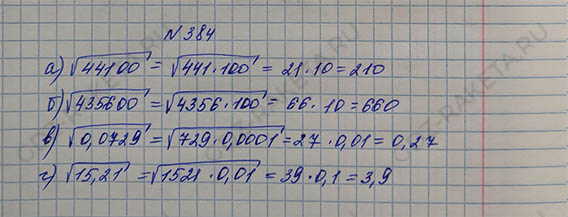 N 384
а) √44100 = √441·100 = 21·10 = 210
б) √435600 = √4356·100 = 66·10 = 660
в) √0,0729 = √729·0,0001 = 27·0,01 = 0,27
г) √15,21 = √1521·0,01 = 39·0,1 = 3,9